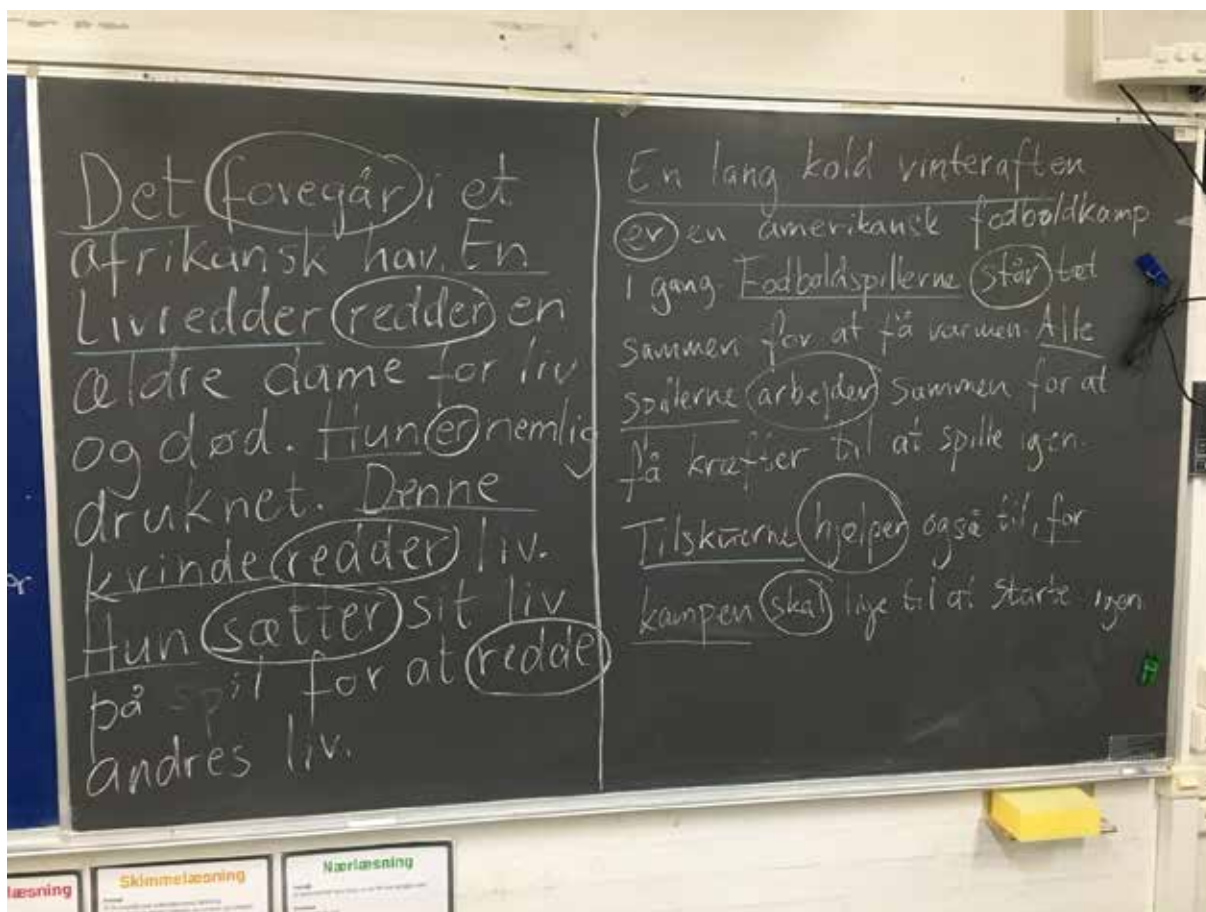 Det foregår i et
afrikansk hav. En
Livredder redder en
ældre dame for liv
og død. Hun er nemlig
druknet. Denne
kvinde redder liv.
Hun sætter sit liv
på spil for at redde
andres liv.
En lang kold vinteraften
er en amerikansk fodboldkamp
i gang. Fodboldspillerne står tæt
sammen for at få varmen. Alle
spillerne arbejder sammen for at
få kræfter til at spille igen.
Tilskuerne hjælper også til, for
kampen skal lige til at starte igen
læsning
Skimmelæsning
Nærlæsning